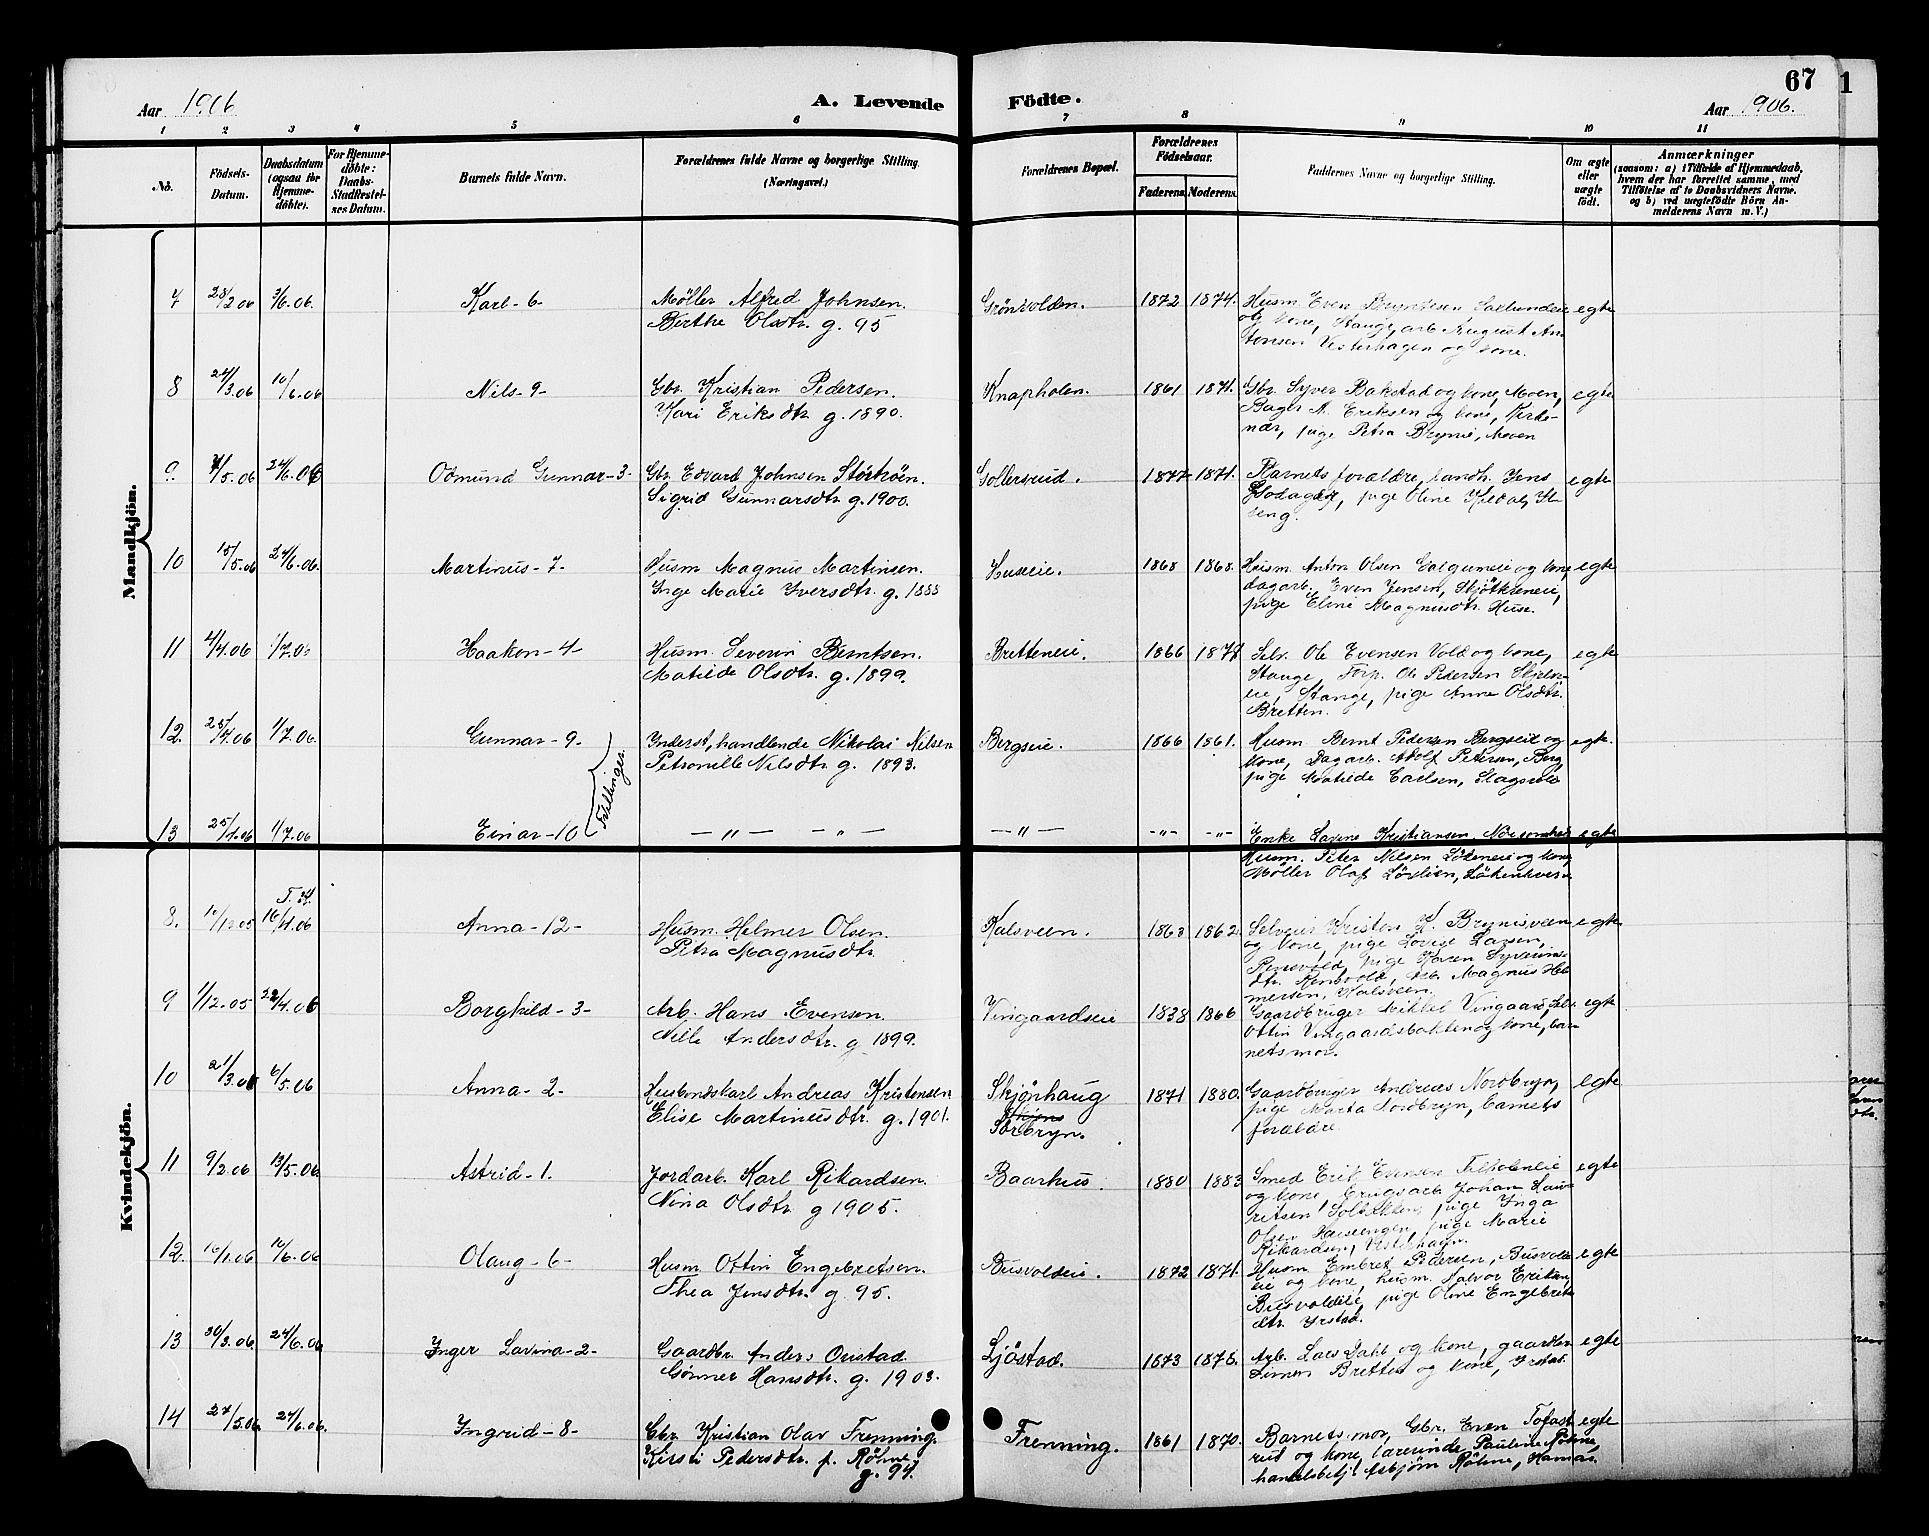 67
1
Aar 1906
A. Levende
Födte.
Aar 1906.
1 2 3 4 5 6 7 8 9 10 11
No.
Födsels-
Datum.
Daabsdatum
(ogsaa for
Hjemme-
döbte).
For Hjemme-
döbte:
Daabs-
Stadfæstel-
ses Datum.
Barnets fulde Navn.
Forældrenes fulde Navne og borgerlige Stilling.
(Næringsvei.)
Forældrenes Bopæl.
Forældrenes
Födselsaar.
Faderens. Moderens.
Faddernes Navne og borgerlige Stilling.
Om ægte
eller
uægte
født.
Anmærkninger
(saasom: a) i Tilfælde af Hjemmedaab,
hvem der har forrettet samme, med
Tilføielse af to Daabsvidners Navne,
og b) ved uægtefødte Börn An-
melderens Navn m. V.)
Mandkjön.
7 28/2 06 3/6.06. Karl-6- Møller Alfred Johnsen.
Berthe Olsdtr. g. 95
Grönvolden. 1872 1874.
Husm Even egte
og kone, Stange, arb. August An-
tonsen Vesterhagen og kone.
8 24/3.06 10/6.06 Nils-9- Gbr. Kristian Pedersen.
Kari Eriksdtr. g. 1890.
Knapholen. 1861 1871.
Gbr. Syver Bakstad og kone, Moen, egte
Bager A. Eriksen og kone, Verts-
nær, pige Petra Brynie, Moen
9. 7/5.06 24/6.06 Odmund Gunnar-3- Gbr. Edvard Johnsen Storhöen.
Sigrid Gunnarsdtr. g. 1900.
Sollersrud. 1877 1871.
Barnets forældre, landh. Jens egte
pige Oline
seng.
10 15/5.06 24/6.06. Martinus-7- Husm Magnus Martinsen.
Inge Marie Iversdtr. g. 1888
Huseie. 1868 1868.
Husm. Anton Olsen og kone, egte
dagarb. Even Jensen,
pige Eline Magnusdtr. Huse.
11 4/4.06 1/7.06 Haakon-4- Husm. Severin Berntsen.
Matilde Olsdtr. g. 1899.
Bretteneie. 1866 1877
Selv. Ole Evensen Vold og kone, egte
Stange, Forp. Ole Pedersen
eie, Stange, pige Anne Olsdtr.
Bretten.
12. 25/4.06 1/7.06. Gunnar-9- Inderst, handlende Nikolai Nilsen
Petronelle Nilsdtr. g. 1893.
Bergseie. 1866 1861.
Husm. Bernt Pedersen Bergseie og egte.
kone, Dagarb. Adolf Petersen, Berg,
pige Matilde Carlsen, Slagsvold
Tvillinger.
13 25/4.06 1/7.06 Einar-10 —„— —„— —„— -„- -„-
Enke Lavine Kristiansen, egte
Husm. Peter Nilsen Løkeneie og kone,
Møller Olaf
Kvindekjön.
8. 10/12 05 T. 24. 16/4.06 Anna-12- Husm. Helmer Olsen.
Petra Magnusdtr.
Kalsveen. 1863 1862.
Selveier Kristen K. Brynisveen egte
og kone, pige Lovise Larsen,
Rensvold, pige Karen
dtr. Rensvold, arb. Magnus Hel-
mersen, Kalsveen.
9 1/12.05 22/4.06 Borghild-3- Arb. Hans Evensen.
Nille Andersdtr. g 1899.
Vingaardseie 1838 1866
Gaardbruger Mikkel Vingaard, Selv. egte
Ottin Vingaardsbakken og kone, bar-
netsmor.
10 21/3.06 6/5.06 Anna-2- Husbondskarl Andreas Kristensen
Elise Martinusdtr. g. 1901.
Skjönhaug
Skjöns
Sörbryn. 1871 1880.
Gaardbruger Andreas Nordbryn, egte
pige Marta Nordbryn, barnets
forældre.
11 9/2.06 13/5.06 Astrid-1. Jordarb. Karl Rikardsen.
Nina Olsdtr. g 1905.
Baarhus. 1880 1883
Smed Erik Evensen egte
og kone, brugsarb. Johan Lau-
ritsen Solbakken, pige Inga
Olsen pige Marie
Rikardsen, Vesterhagen.
12. 16/1.06 10/6.06 Olaug-6- Husm Ottin Engebretsen.
Thea Jensdtr. g. 95.
Busvoldeie. 1872 1871.
Husm Embret Pedersen, Busvold- egte
eie og kone, husm. Halvor Eriksen,
Busvoldeie, pige Oline Engebrets-
dtr. Yrstad.
13 30/3.06. 24/6.06. Inger Lavina-2- Gaardbr. Anders Onstad.
Gönner Hansdtr. g. 1903.
Ljöstad. 1873 1875.
Arb. Lars Dahl og kone, gaardbr. egte
Simen Bretten og kone, Yrstad.
14 27/5.06. 24/6.06. Ingrid-8- Gbr. Kristian Olav Frenning.
Kirsti Pedersdtr. f. Röhne.
g. 94.
Frenning. 1861 1870.
Barnets mor, Gbr. Even Tofast- egte
rud og kone, lærerinde Pauline Röhne,
handelsbetj. Asbjörn Röhne, Hamar.